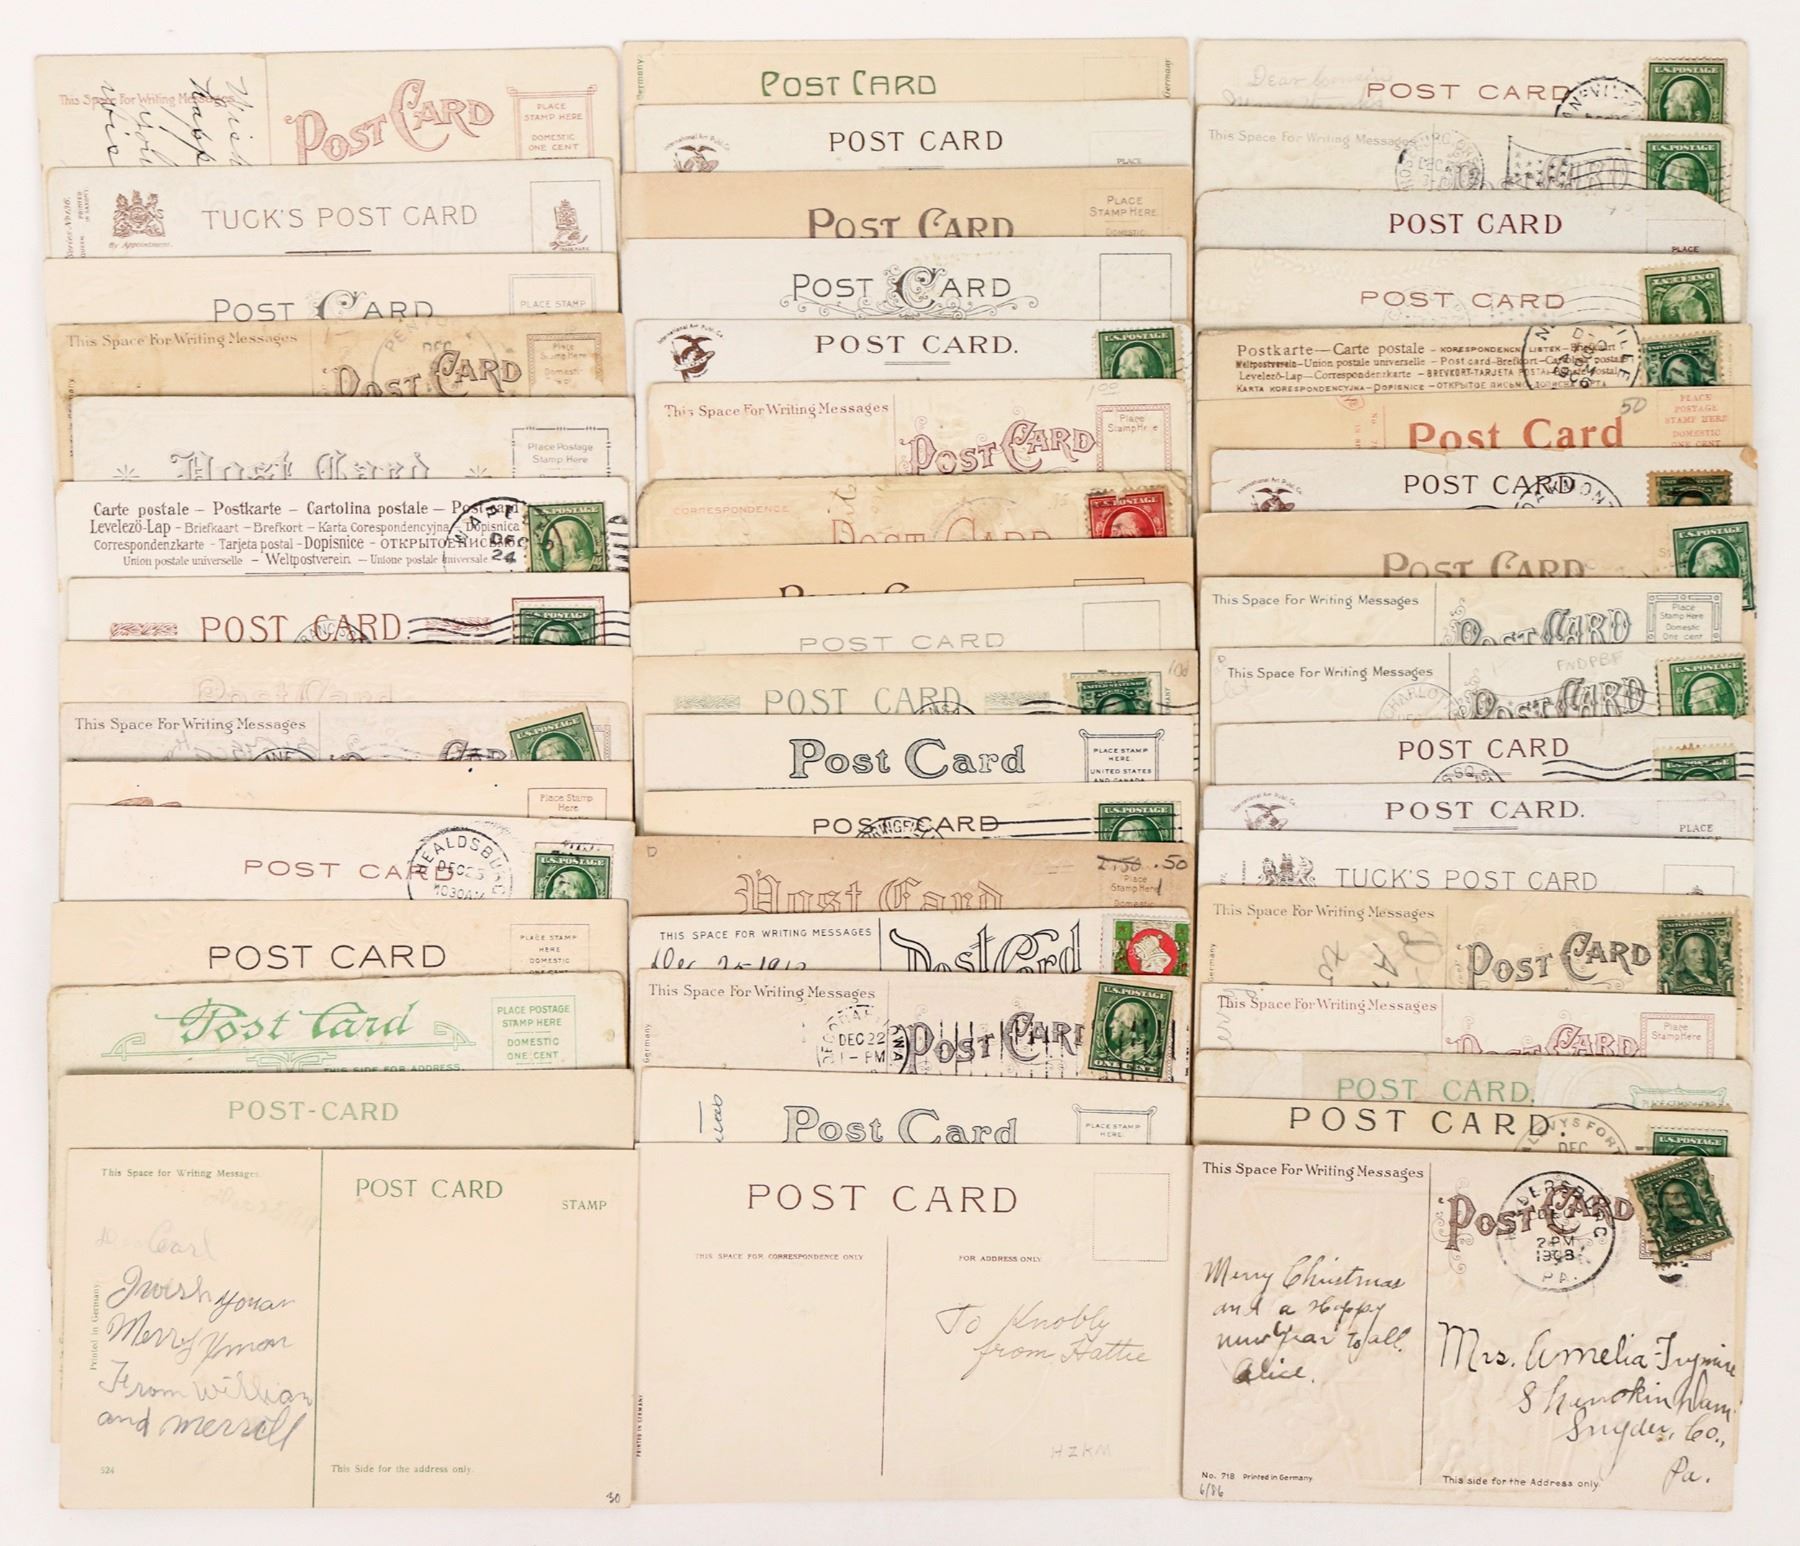 This Space For Writing Messages
POST CARD
PLACE
STAMP HERE
DOMESTIC
ONE CENT
Wish
you
Happ
Series No. 136.
PRINTED
IN SAXONY
By Appointment.
TUCK'S POST CARD
TRADE MARK
POST CARD
PLACE STAMP
This Space For Writing Messages
DEC
POST CARD
Place
Stamp Here
Domestic
Post Card
Place Postage
Stamp Here
Carte postale – Postkarte – Cartolina postale – Post card
Levelező-Lap – Briefkaart – Brefkort – Karta Corespondencyjna – Dopisnica
Correspondenzkarte – Tarjeta postal – Dopisnice – ОТКРЫТОЕ ПИСЬМО
Union postale universelle – Weltpostverein – Unione postale universale
DEC
24
U.S. POSTAGE
POST CARD.
U.S. POSTAGE
Post Card
This Space For Writing Messages
CARD
U.S. POSTAGE
Place Stamp
Here
POST CARD
HEALDSBURG
DEC 25
1030AM
U.S. POSTAGE
POST CARD
PLACE STAMP
HERE
DOMESTIC
ONE CENT
Post Card
PLACE POSTAGE
STAMP HERE
DOMESTIC
ONE CENT
THIS SIDE FOR ADDRESS.
POST-CARD
This Space for Writing Messages.
POST CARD
STAMP
Dear Carl
I wish you a
Merry Xmas
From William
and Merrill
Printed in Germany
524
This Side for the address only.
30
Germany
POST CARD
Germany
International Art Publ. Co.
POST CARD
PLACE
POST CARD
PLACE
STAMP HERE
DOMESTIC
POST CARD
International Art Publ. Co.
POST CARD.
U.S. POSTAGE
1.00
This Space For Writing Messages
POST CARD
Place
Stamp Here
CORRESPONDENCE
POST CARD
U.S. POSTAGE
POST CARD
POST CARD
POST CARD
100
Post Card
PLACE STAMP
HERE
UNITED STATES
AND CANADA
POST CARD
U.S. POSTAGE
D
Post Card
2.50 .50
Place
Stamp Here
Domestic
THIS SPACE FOR WRITING MESSAGES
Post Card
Dec 25-1912
This Space For Writing Messages
Germany
DECORAH
DEC 22
1-PM
IOWA
POST CARD
U.S. POSTAGE
ONE CENT
Post Card
PLACE STAMP
HERE
POST CARD
THIS SPACE FOR CORRESPONDENCE ONLY
FOR ADDRESS ONLY
To Knobly
from Hattie
PRINTED IN GERMANY
HZKM
Dear Cousin
POST CARD
U.S. POSTAGE
This Space For Writing Messages
DEC
CARD
U.S. POSTAGE
POST CARD
PLACE
POST CARD
Postkarte — Carte postale – KORESPONDENCNI LISTEK – Brefkort
Weltpostverein – Union postale universelle – Post card – Brefkort – Cartolina postale
Levelező-Lap – Correspondenzkarte – BREVKORT – TARJETA POSTAL
KARTA KORESPONDENCYJNA – DOPISNICE – ОТКРЫТОЕ ПИСЬМО
Post Card
50
PLACE
POSTAGE
STAMP HERE
DOMESTIC
ONE CENT
International Art Publ. Co.
POST CARD
POST CARD
U.S. POSTAGE
This Space For Writing Messages
POST CARD
Place
Stamp Here
Domestic
One cent
This Space For Writing Messages
FNDPBF
CHARLO
POST CARD
U.S. POSTAGE
POST CARD
International Art Publ. Co.
POST CARD.
PLACE
TUCK'S POST CARD
This Space For Writing Messages
Germany
POST CARD
This Space For Writing Messages
POST CARD
Place
Stamp Here
POST CARD.
POST CARD.
DEC
U.S. POSTAGE
This Space For Writing Messages
POST CARD
DEC
2 PM
1908
PA.
Merry Christmas
and a Happy
new Year to all.
Alice.
Mrs. Amelia
Snyder, Co.,
Pa.
No. 718 Printed in Germany
6/86
This side for the Address only